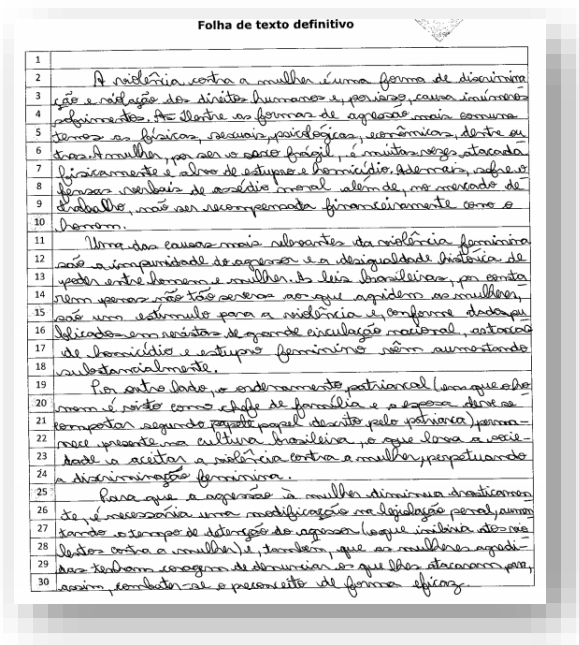 Folha de texto definitivo
1
2 A violência contra a mulher é uma forma de discrimina
3 ção e violação dos direitos humanos e, por isso, causa inúmeros
4 sofrimentos. As formas de agressão mais comuns
5 temos as físicas, sexuais, psicológicas, econômicas, dentre ou
6 tras. A mulher, por ser o sexo frágil, é muitas vezes atacada
7 fisicamente e alvo de estupro e homicídio. Ademais, sofre o
8 fensas verbais de assédio moral além de, no mercado de
9 trabalho, não ser recompensada financeiramente como o
10 homem.
11 Uma das causas mais relevantes da violência feminina
12 são a impunidade do agressor e a desigualdade histórica de
13 poder entre homem e mulher. As leis brasileiras, por conta
14 rem penas não tão severas aos que agridem as mulheres,
15 são um estímulo para a violência e, conforme dados pu
16 blicados em revistas de grande circulação nacional, as taxas
17 de homicídio e estupro feminino vêm aumentando
18 substancialmente.
19 Por outro lado, o ordenamento patriarcal (em que o ho
20 mem é visto como chefe de família e a esposa deve se
21 comportar segundo papel descrito pelo patriarca) perma-
22 nece presente na cultura brasileira, o que leva a socie-
23 dade a aceitar a violência contra a mulher, perpetuando
24 a discriminação feminina.
25 Para que a agressão à mulher diminua drasticamen
26 te, é necessária uma modificação na legislação penal, aumen
27 tando o tempo de detenção do agressor (o que inibiria atos vio
28 lentos contra a mulher) e, também, que as mulheres agredi-
29 das tenham coragem de denunciar os que lhes atacaram para,
30 assim, combater-se o preconceito de forma eficaz.